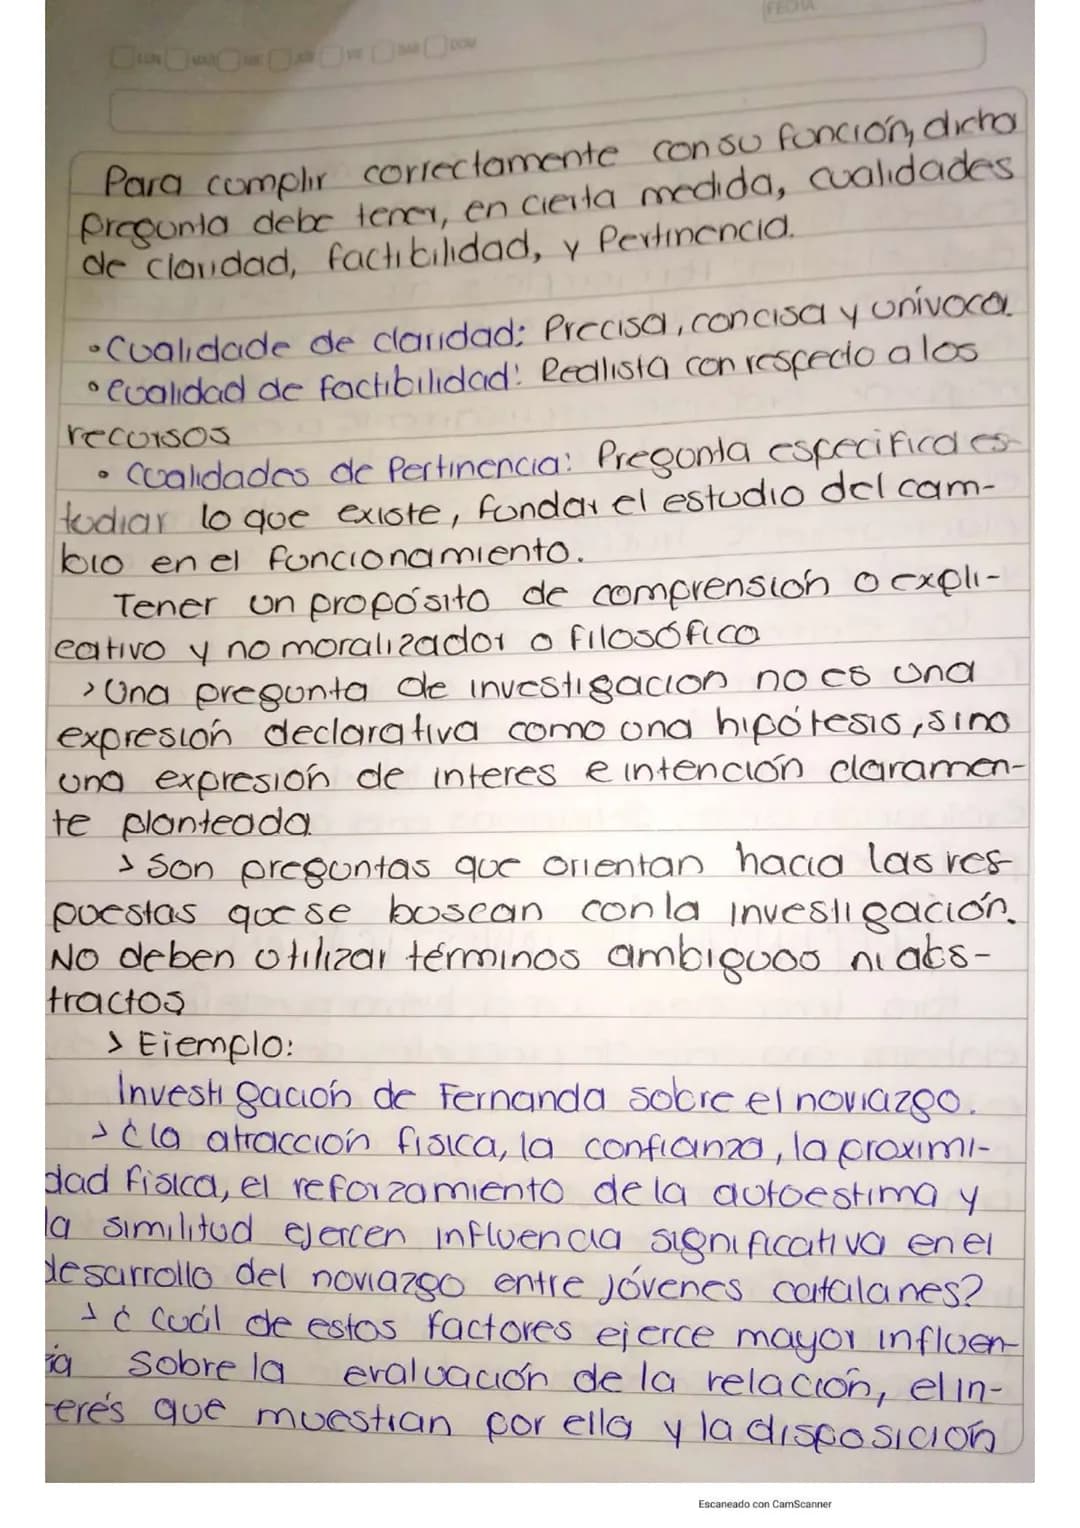 FECHA
LUN MAR MIE JUE VIE SAB DOM
Para cumplir correctamente con su función, dicha
pregunta debe tener, en cierta medida, cualidades
de claridad, factibilidad, y Pertinencia.
•Cualidade de claridad: Precisa, concisa y unívoca.
•Cualidad de factibilidad: Realista con respecto a los
recursos
• Cualidades de Pertinencia: Pregunta especifica es-
tudiar lo que existe, fundar el estudio del cam-
bio en el funcionamiento.
Tener un propósito de comprensión o expli-
cativo y no moralizador o filosófico
> Una pregunta de investigacion no es una
expresión declarativa como una hipótesis, sino
una expresión de interes e intención claramen-
te planteada
> Son preguntas que orientan hacia las res-
puestas que se buscan con la investigación.
No deben utilizar términos ambiguos ni abs-
tractos
> Ejemplo:
Investigación de Fernanda sobre el noviazgo.
> ¿la atracción fisica, la confianza, la proximi-
dad fisica, el reforzamiento de la autoestima y
la similitud ejercen influencia significativa en el
desarrollo del noviazgo entre jóvenes catalanes?
> ¿Cuál de estos factores ejerce mayor influen-
cia sobre la evaluación de la relación, el in-
terés que muestran por ella y la disposición
Escaneado con CamScanner